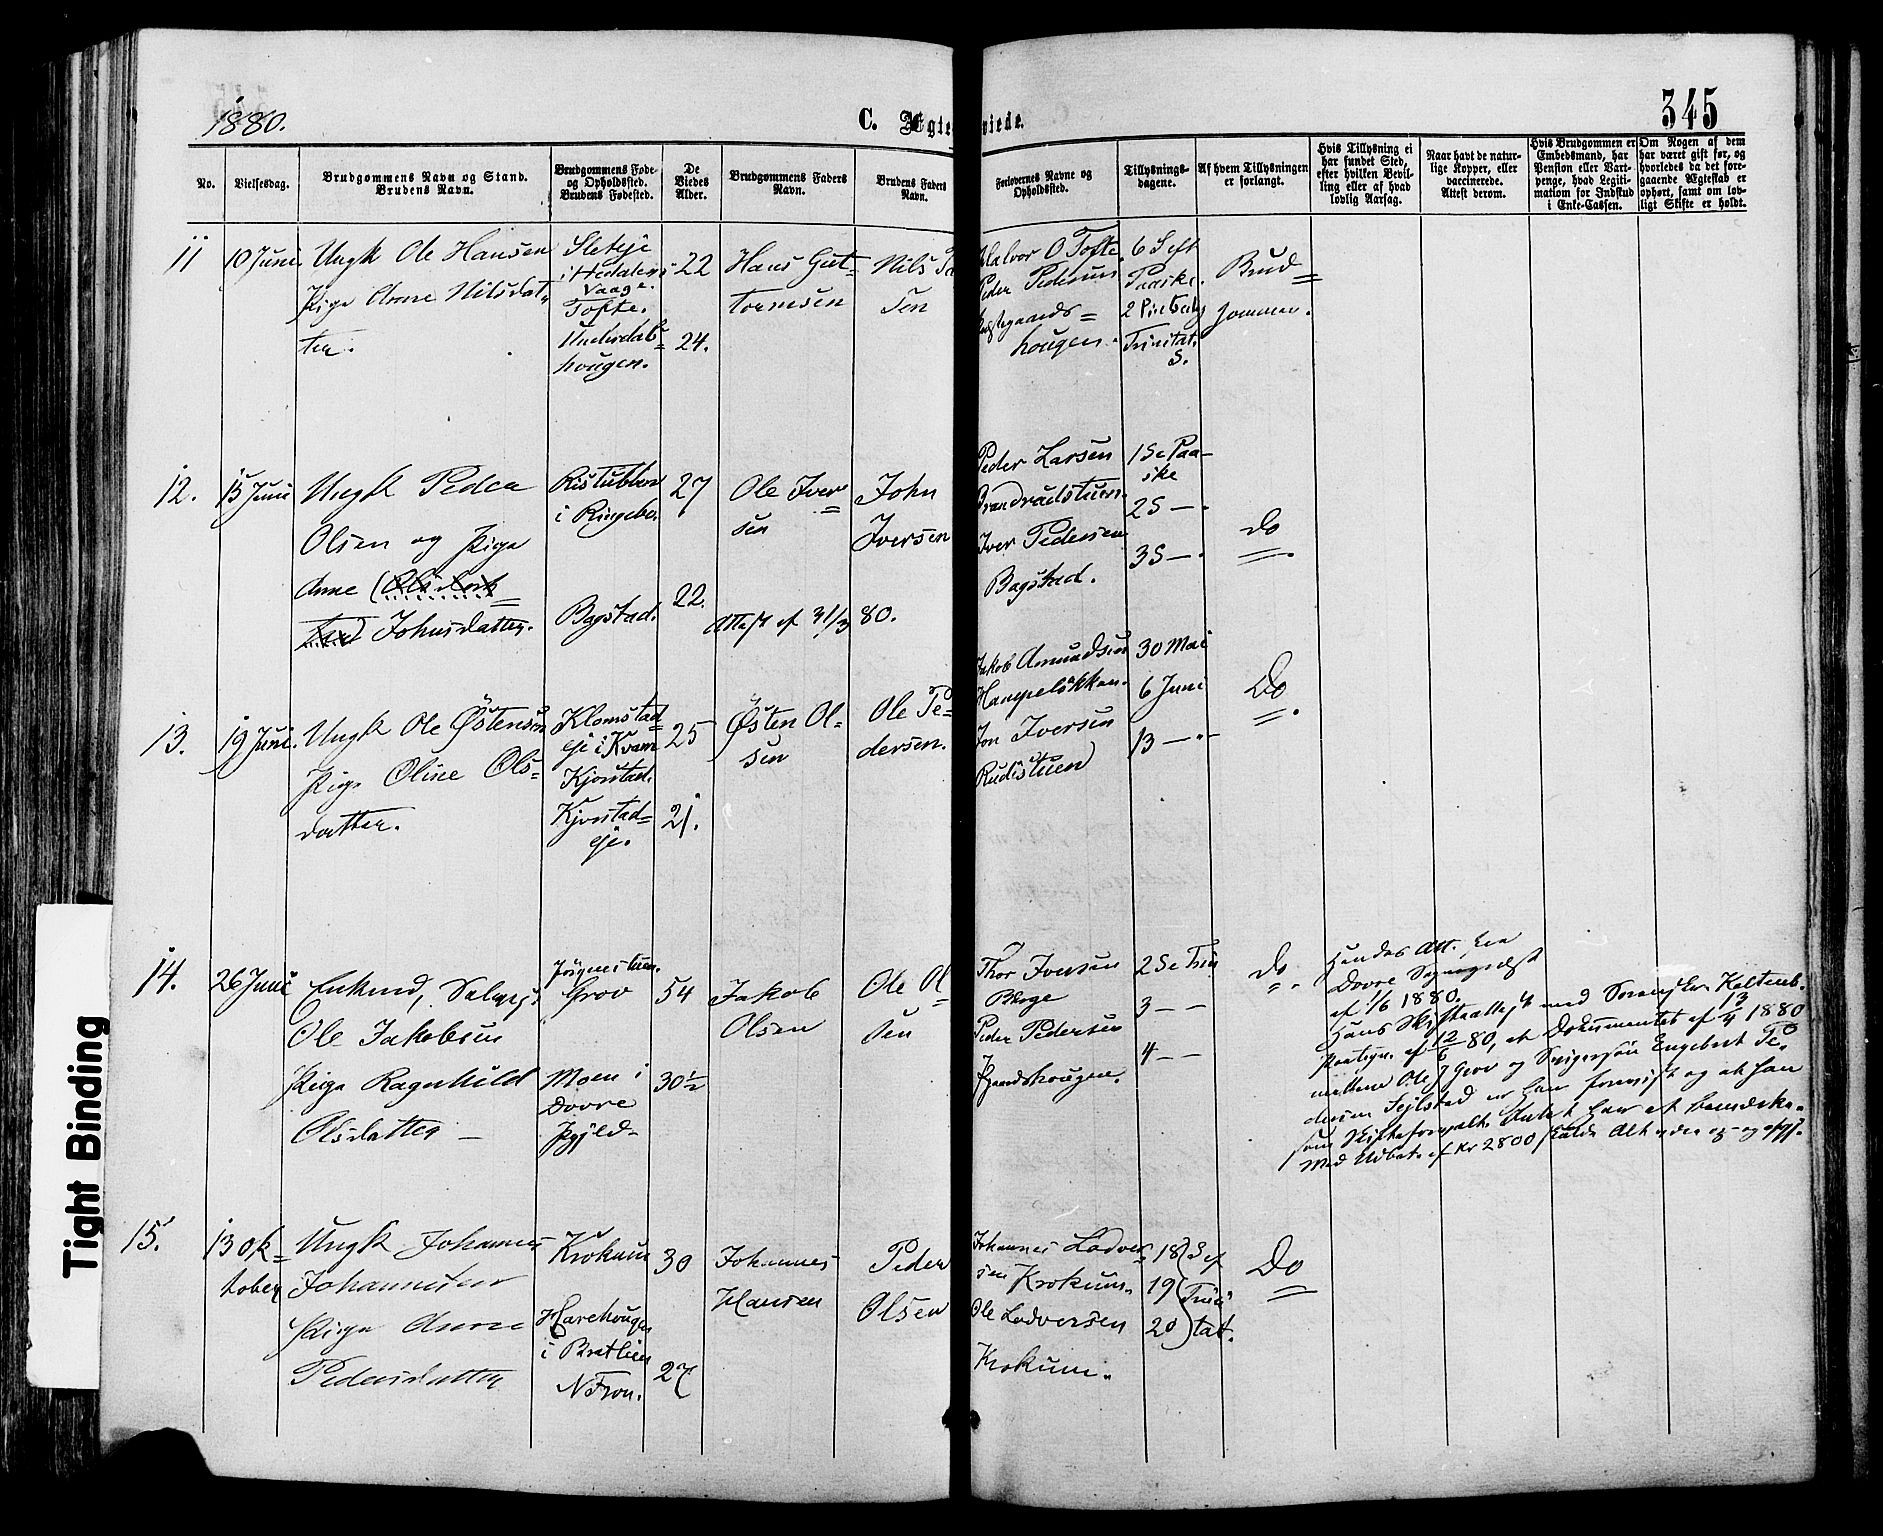 1880.
C. Ægte viede.
345
No.
Vielsesdag.
Brudgommens Navn og Stand.
Brudens Navn.
Brudgommens Føde-
og Opholdssted.
Brudens Fødested.
De
Viedes
Alder.
Brudgommens Faders
Navn.
Brudens Faders
Navn.
Forlovernes Navne og
Opholdssted.
Tillysnings-
dagene.
Af hvem Tillysningen
er forlangt.
Hvis Tillysning ei
har fundet Sted,
efter hvilken Bevil-
ling eller af hvad
lovlig Aarsag.
Naar havt de natur-
lige Kopper, eller
vaccinerede.
Attest derom.
Hvis Brudgommen er
Embedsmand, har
Pension eller Vart-
penge, hvad Legiti-
mation for Indskud
i Enke-Cassen.
Om Nogen af dem
har været gift før, og
hvorledes da det fore-
gaaende Ægteskab er
ophørt, samt om lov-
ligt Skifte er holdt.
11
10 Juni
Ungk Ole Hansen
Pige Anne Nilsdat-
ter.
Sleteje
i Hedalen i
Vaage.
Tofte.
hougen.
22
24.
Hans Gut-
tormsen
Nils
Halvor O Tofte
Peder Pedersen
hougen.
6 S eft
Paaske.
2 Pintsedag
Trinitat.
S.
Brud
gommen.
12.
15 Juni
Ungk Peder
Olsen og Pige
Anne (Olsdat
ter) Johnsdatter.
Ristubben
i Ringebo.
Bagstad.
27
22.
Ole Iver
sen
John
Iversen
Attest af 31/3 80.
Peder Larsen
Brandvadstuen.
Iver Pedersen
Bagstad.
1 S e Paa-
ske
2 S — .
3 S — .
Do
13.
19 Juni.
Ungk Ole Østensen
Pige Oline Ols-
datter.
Klomstad
eje i Kvam
Kjorstad.
Kjorstad-
eje.
25
21.
Østen Ol-
sen
Ole Pe-
dersen.
Jakob Amundsen
Hampeløkken.
Jon Iversen
Rudistuen
30 Mai
6 Juni
13 — -
Do
14.
26 Juni
Enkmd, Selvejer
Ole Jakobsen
Pige Ragnhild
Olsdatter —
Grov
Moen i
Dovre
54
30 1/2
Jakob
Olsen
Ole Ol
sen
Thor Iversen
Berge
Peder Pedersen
2 S e Trin
3 — —
4 — —
do
Hendes Att. fra
Dovre Sogneprest
af 1/6 1880.
Hans Skifteattest med
paategn. af 12/6 80, at Dokumentet af 13/4 1880
mellem Ole J Grov og Svigersøn Engebret Pe
dersen
15.
13 Ok
tober
Ungk Johannes
Johannesen
Pige Anne
Pedersdatter
Krokum
Harehougen
i Bratlien
N Fron.
30
27
Johannes
Hansen
Peder
Olsen
Johannes Lodver
sen Krokum.
Ole Lodversen
Krokum.
18 S ef
19 Trini
20 tat.
Do
Tight Binding